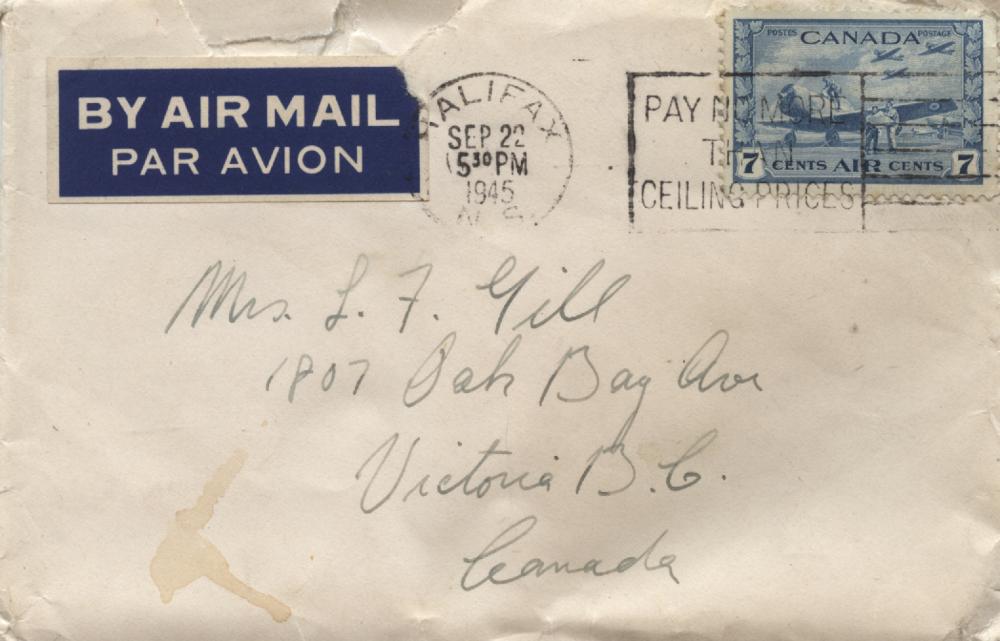 BY AIR MAIL
PAR AVION
HALIFAX
SEP 22
530 PM
1945
N. S.
PAY NO MORE
THAN
CEILING PRICES
POSTES CANADA POSTAGE
7 CENTS AIR CENTS 7
Mrs. L. F. Gill
1807 Oak Bay Ave
Victoria B.C.
Canada